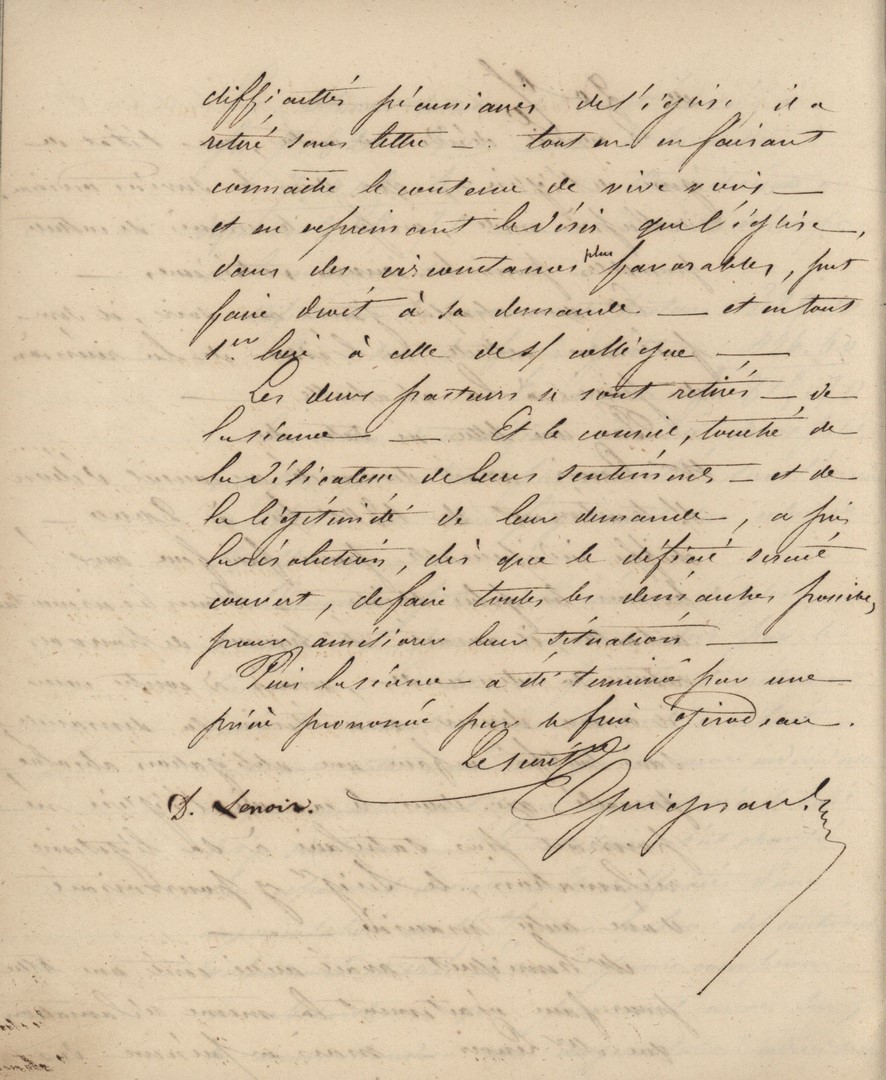 difficultés pécuniaires de l'église il a
retiré sa lettre — tout en en faisant
connaître le contenu de vive voix —
et en exprimant le désir que l'église,
dans des circonstances plus favorables, put
faire droit à sa demande — et en tout
1er lieu à celle de s/ collègue —
Les deux pasteurs se sont retirés — de
la séance — Et le conseil, touché de
la délicatesse de leurs sentiments — et de
la légitimité de leur demande, a pris
la résolution, dès que le déficit serait
couvert, de faire toutes les démarches possibles,
pour améliorer leur situation —
Puis la séance a été terminée par une
prière prononcée par le frère Girodeau.
Le secrét.re
D. Lenoir. Guignard